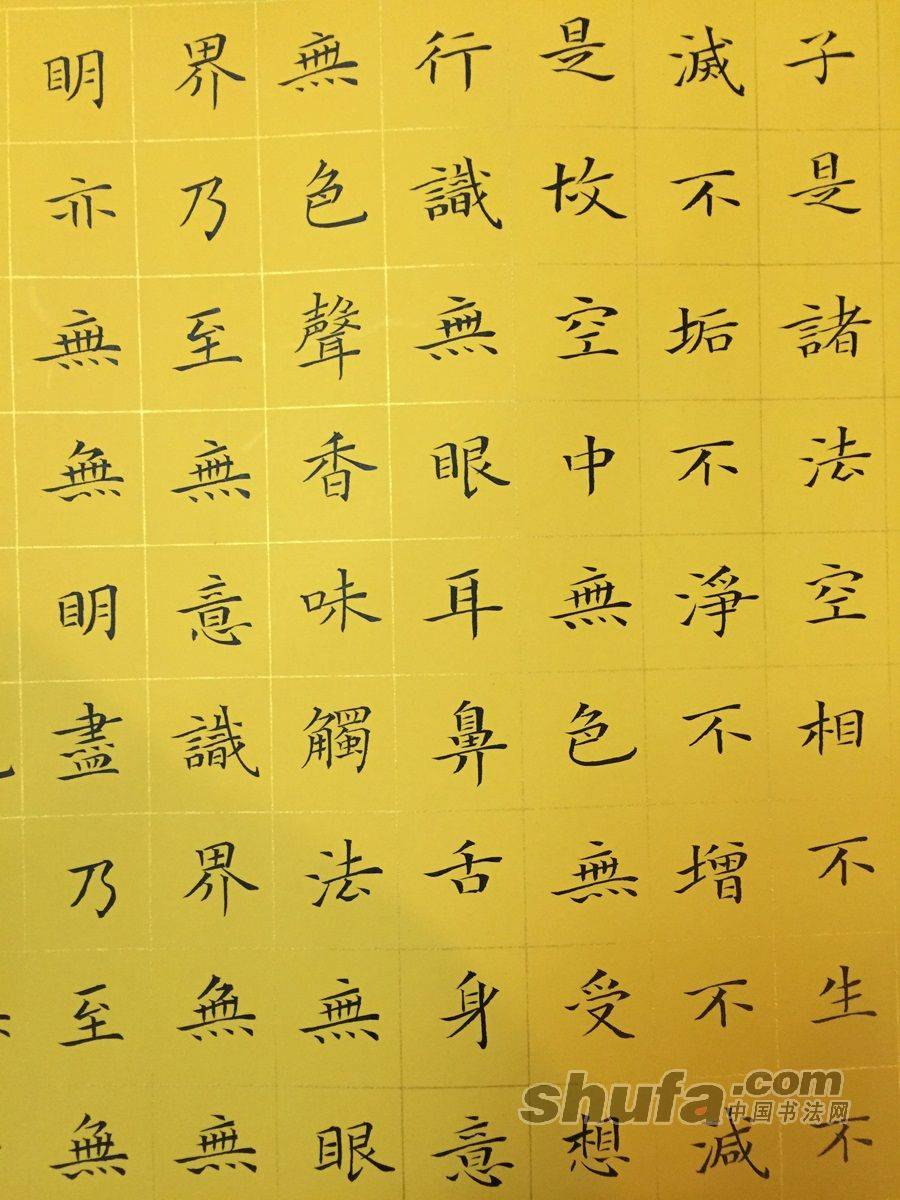 子是諸法空相不生不
滅不垢不淨不增不減
是故空中無色無受想
行識無眼耳鼻舌身意
無色聲香味觸法無眼
界乃至無意識界無無
明亦無無明盡乃至無
shufa.com
中国书法网